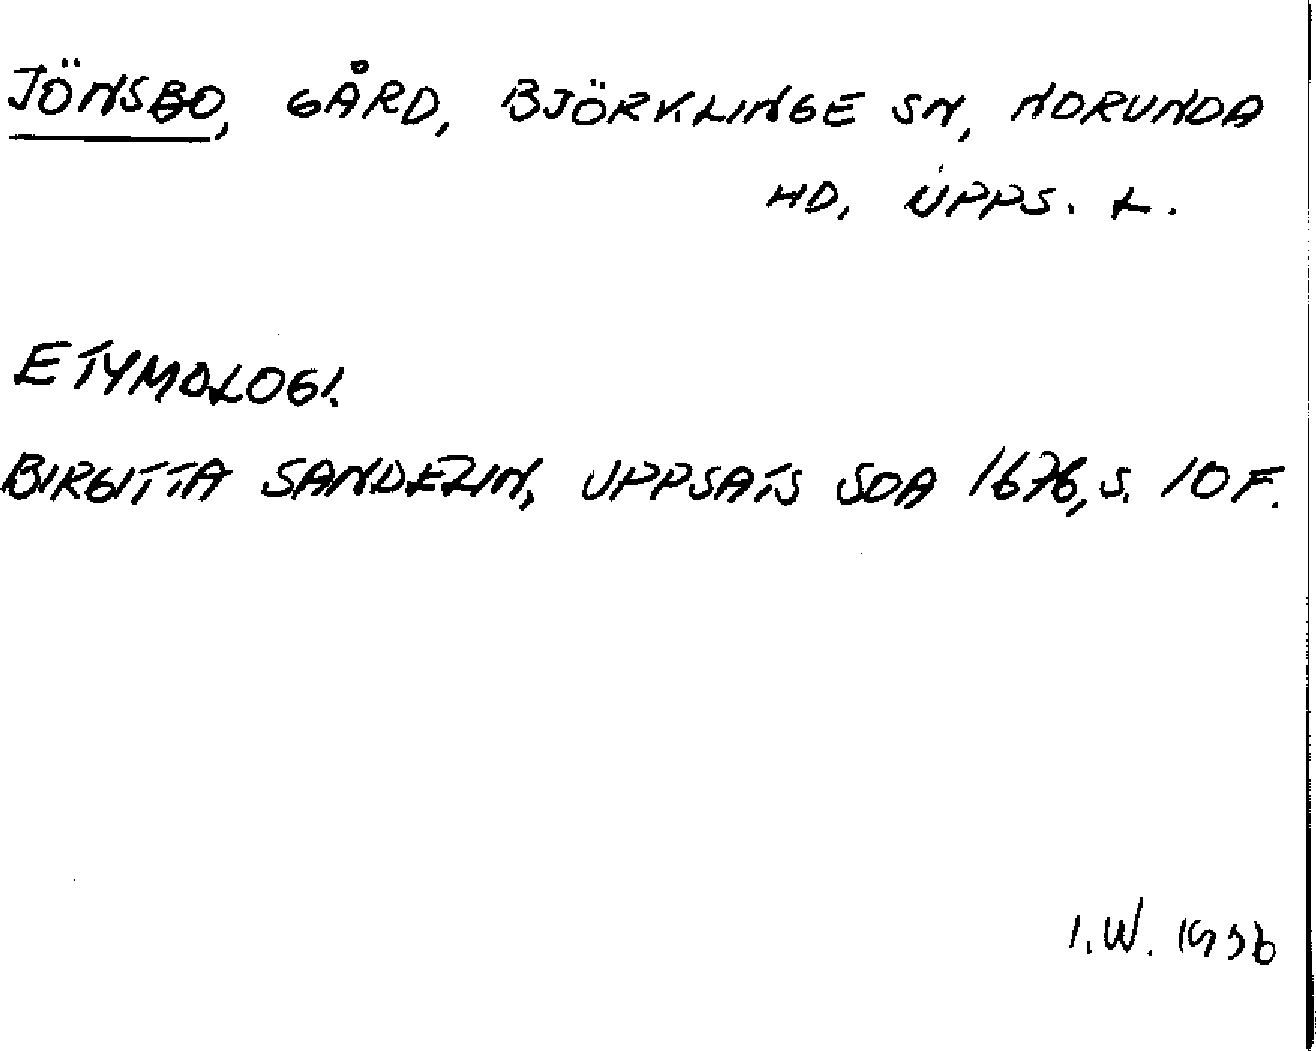 JÖNSBO, GÅRD, BJÖRKLINGE SN, NORUNDA
HD, UPPS. L.
ETYMOLOGI.
BIRGITTA SANDELIN, UPPSATS SOA 1676, S. 10 F.
I.W. 1996